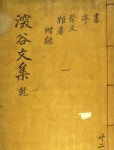 書
序
祭文
雜著
附錄
一
濲谷文集 乾
共二